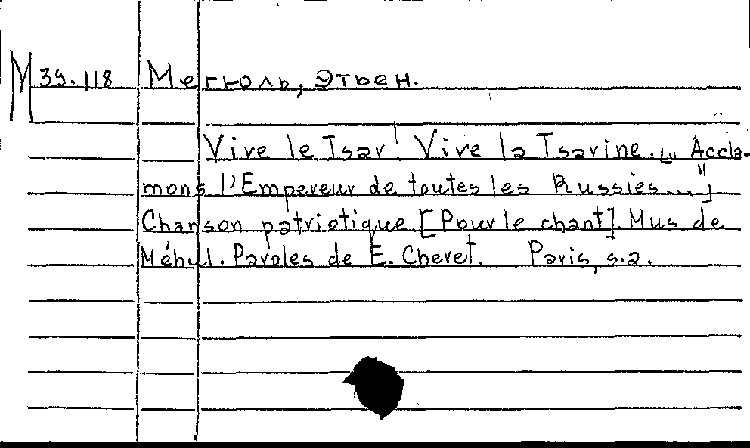 М 39.118 Мегюль, Этьен.
Vive le Tsar! Vive la Tsarine. [„Accla-
mons l'Empereur de toutes les Russies..."]
Chanson patriotique. [Pour le chant]. Mus de
Méhul. Paroles de E. Cheret. Paris, s.a.